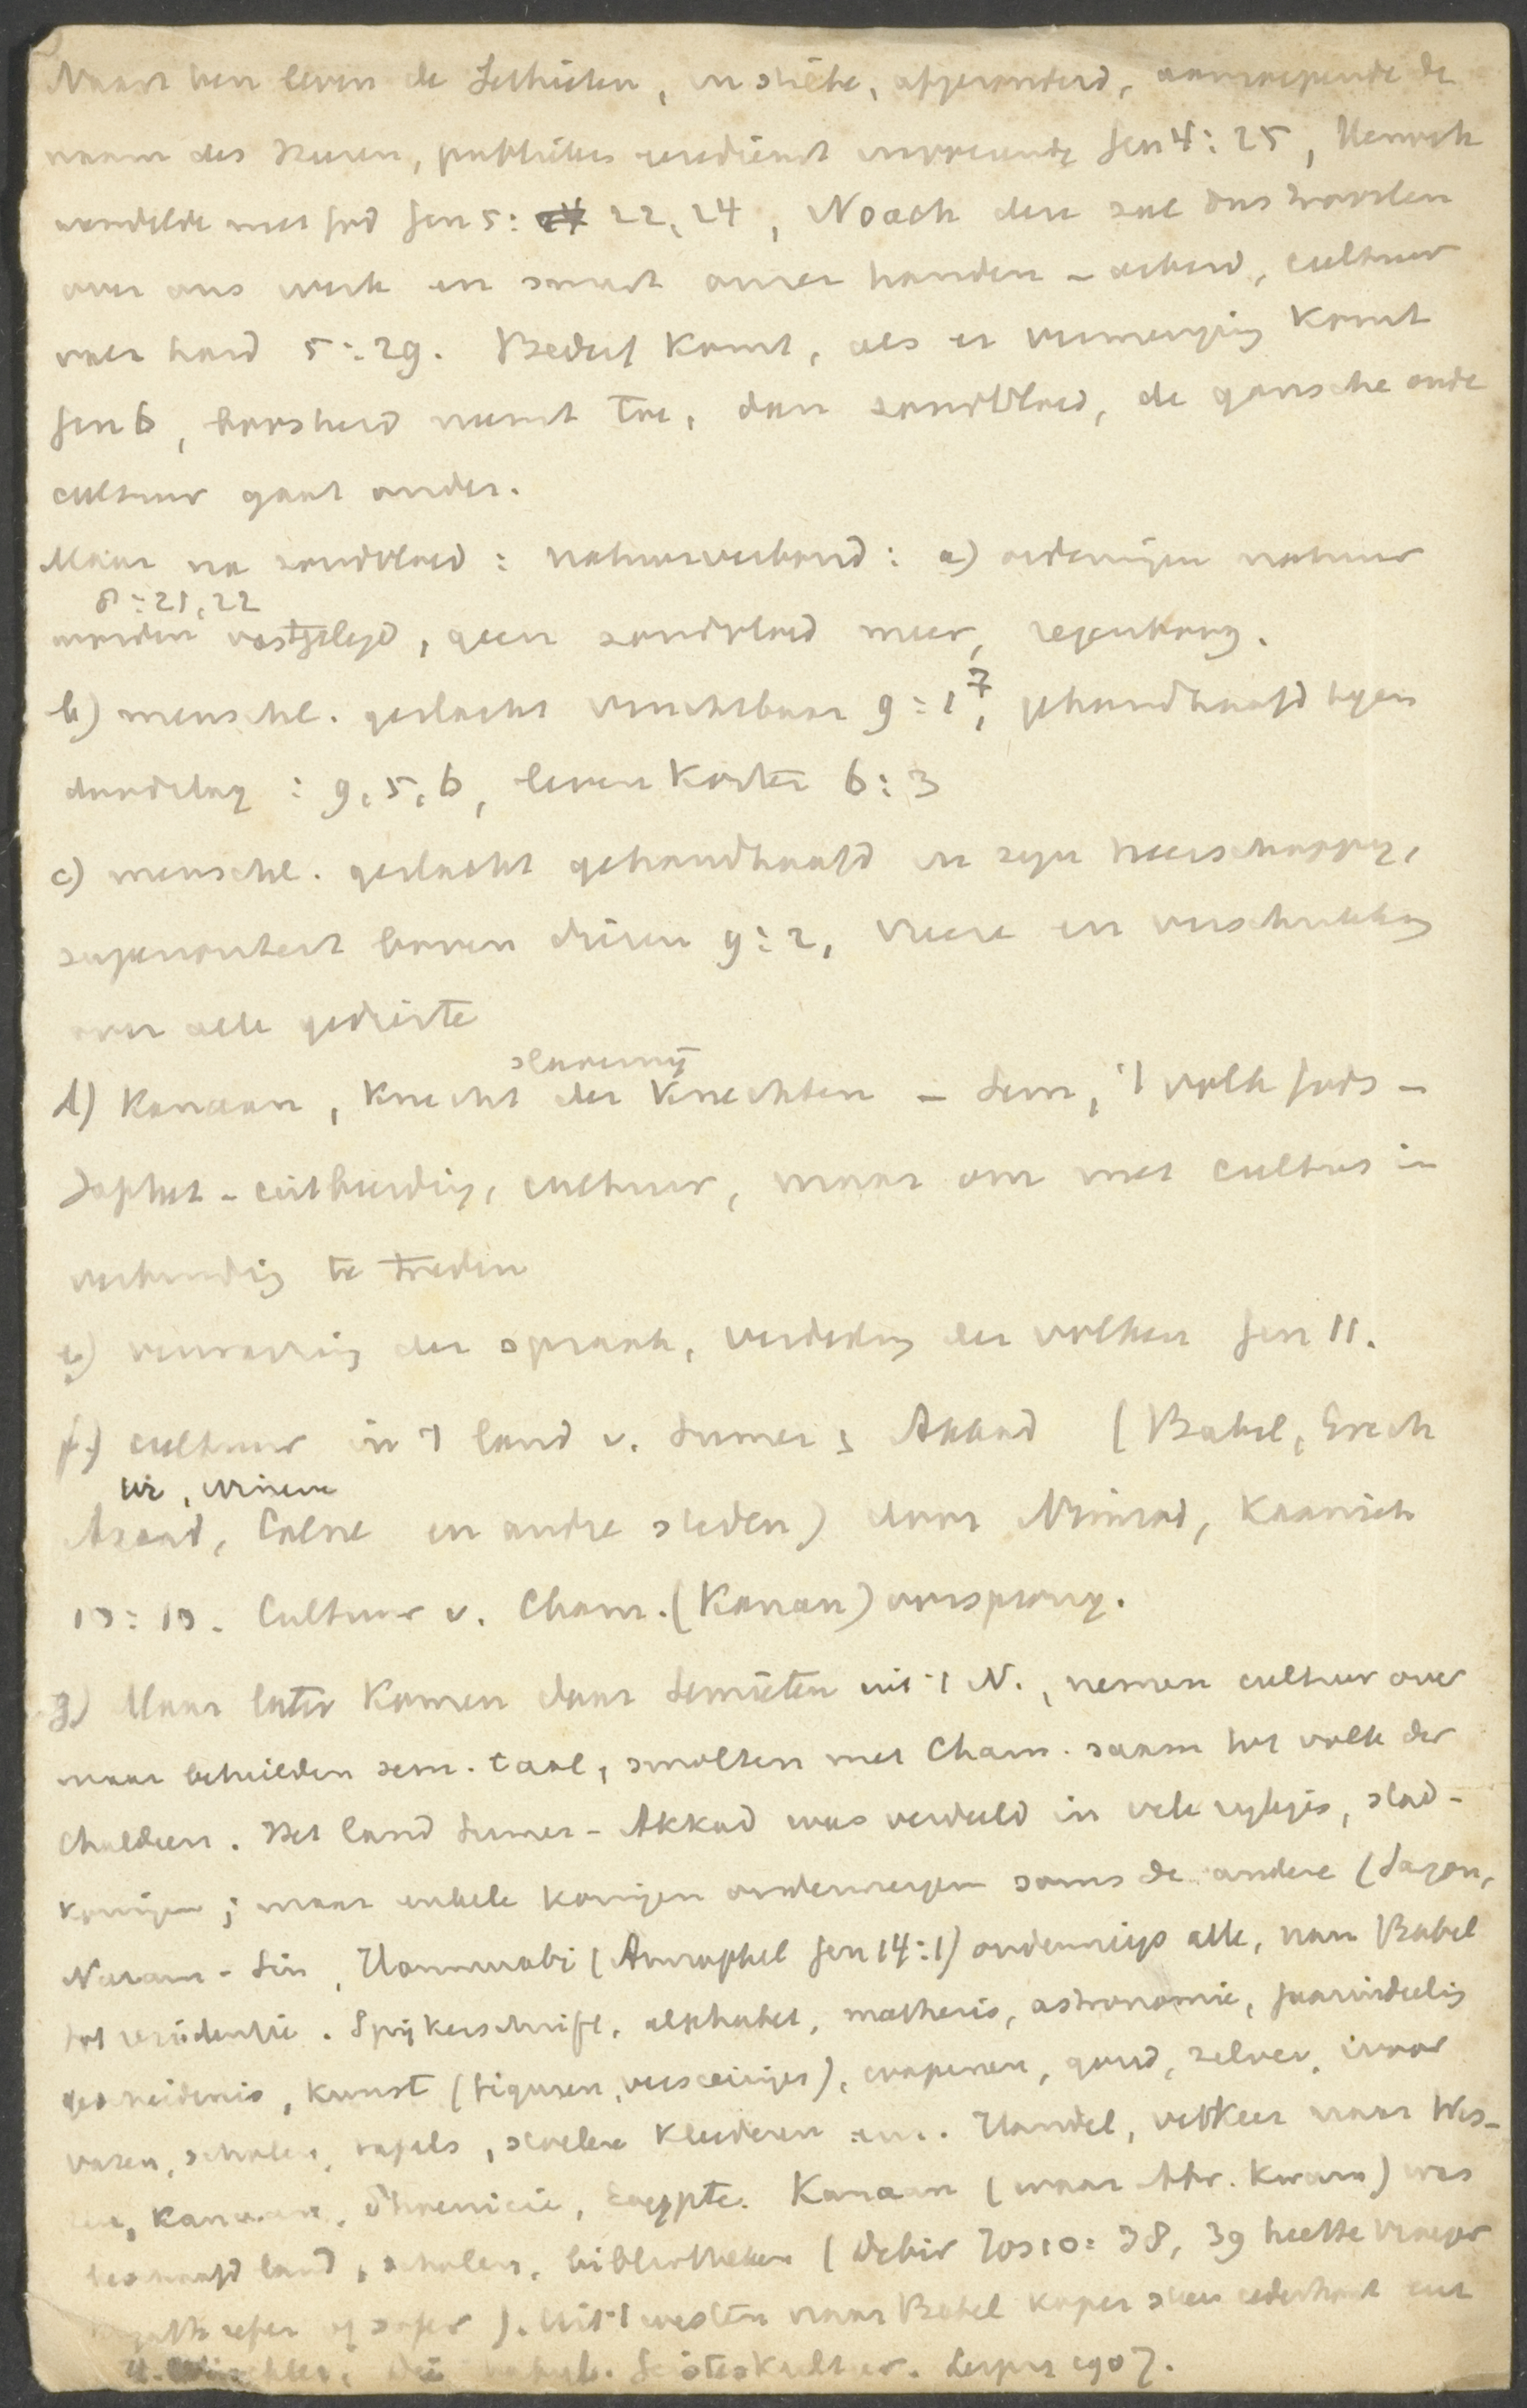 Naast hen leven de Sethieten, in stilte, afgezonderd, aanroepende de
naam des Heeren, publieken eeredienst invoerende Gen 4:25, Henoch
wandelde met God Gen 5: 22, 24, Noach deze zal ons troosten
over ons werk en smart onzer handen - arbeid, cultuur
viel hard 5:29. Bederf komt, als er vermenging komt
Gen 6, boosheid neemt toe, dan zondvloed, de gansche oude
cultuur gaat onder.
Maar na zondvloed: natuurverbond: a) ordeningen natuur
8:21,22
worden vastgelegd, geen zondvloed meer, regenboog.
b) menschl. geslacht vruchtbaar 9:1, 7, gehandhaafd tegen
doodslag: 9,5,6, leven korter 6:3
c) menschl. geslacht gehandhaafd in zyn heerschappy,
superioriteit boven dieren 9:2, vreze en verschrikking
over alle gedierte
slavernij
d) Kanaan, knecht der knechten - Sem, 't volk Gods -
Japhet - uitbreiding, cultuur, maar om met cultus in
verbinding te treden
e) verwarring der spraak, verdeeling der volken Gen 11.
f) cultuur in 't land v. Sumer & Akkad (Babel, Erech
Ur, Nineve
Accad, Calne en andre steden) door Nimrod, Kaaniet
10:10. Cultuur v. Cham. (Kanan) oorsprong.
g) Maar later komen daar Semieten uit 't N., nemen cultuur over
maar behielden sem. taal, smolten met Cham. saam tot volk der
Chaldeen. Het land Sumer-Akkad was verdeeld in vele rykjes, stad-
koningen; maar enkele koningen onderwerpen soms de andere (Sargon,
Naram-Sin, Hammurabi (Amraphel Gen 14:1) onderwierp alle, nam Babel
tot residentie. Spijkerschrift, alphabet, mathesis, astronomie, jaarindeeling
geschiedenis, kunst (figuren, versieringen), wapenen, goud, zilver, ivoor
vazen, schalen, tafels, stoelen kleederen enz. Handel, verkeer naar Wes-
ten, Kanaan, Phoenicie, Egypte. Kanaan (waar Abr. kwam) was
beschaafd land, scholen, bibliotheken (Debir Jos 10:38, 39 heette vroeger
sefer of sofer). Uit 't westen naar Babel koper steen cederhout enz
H. Winckler, Die babyl. Geisteskultur. Leipzig 1907.